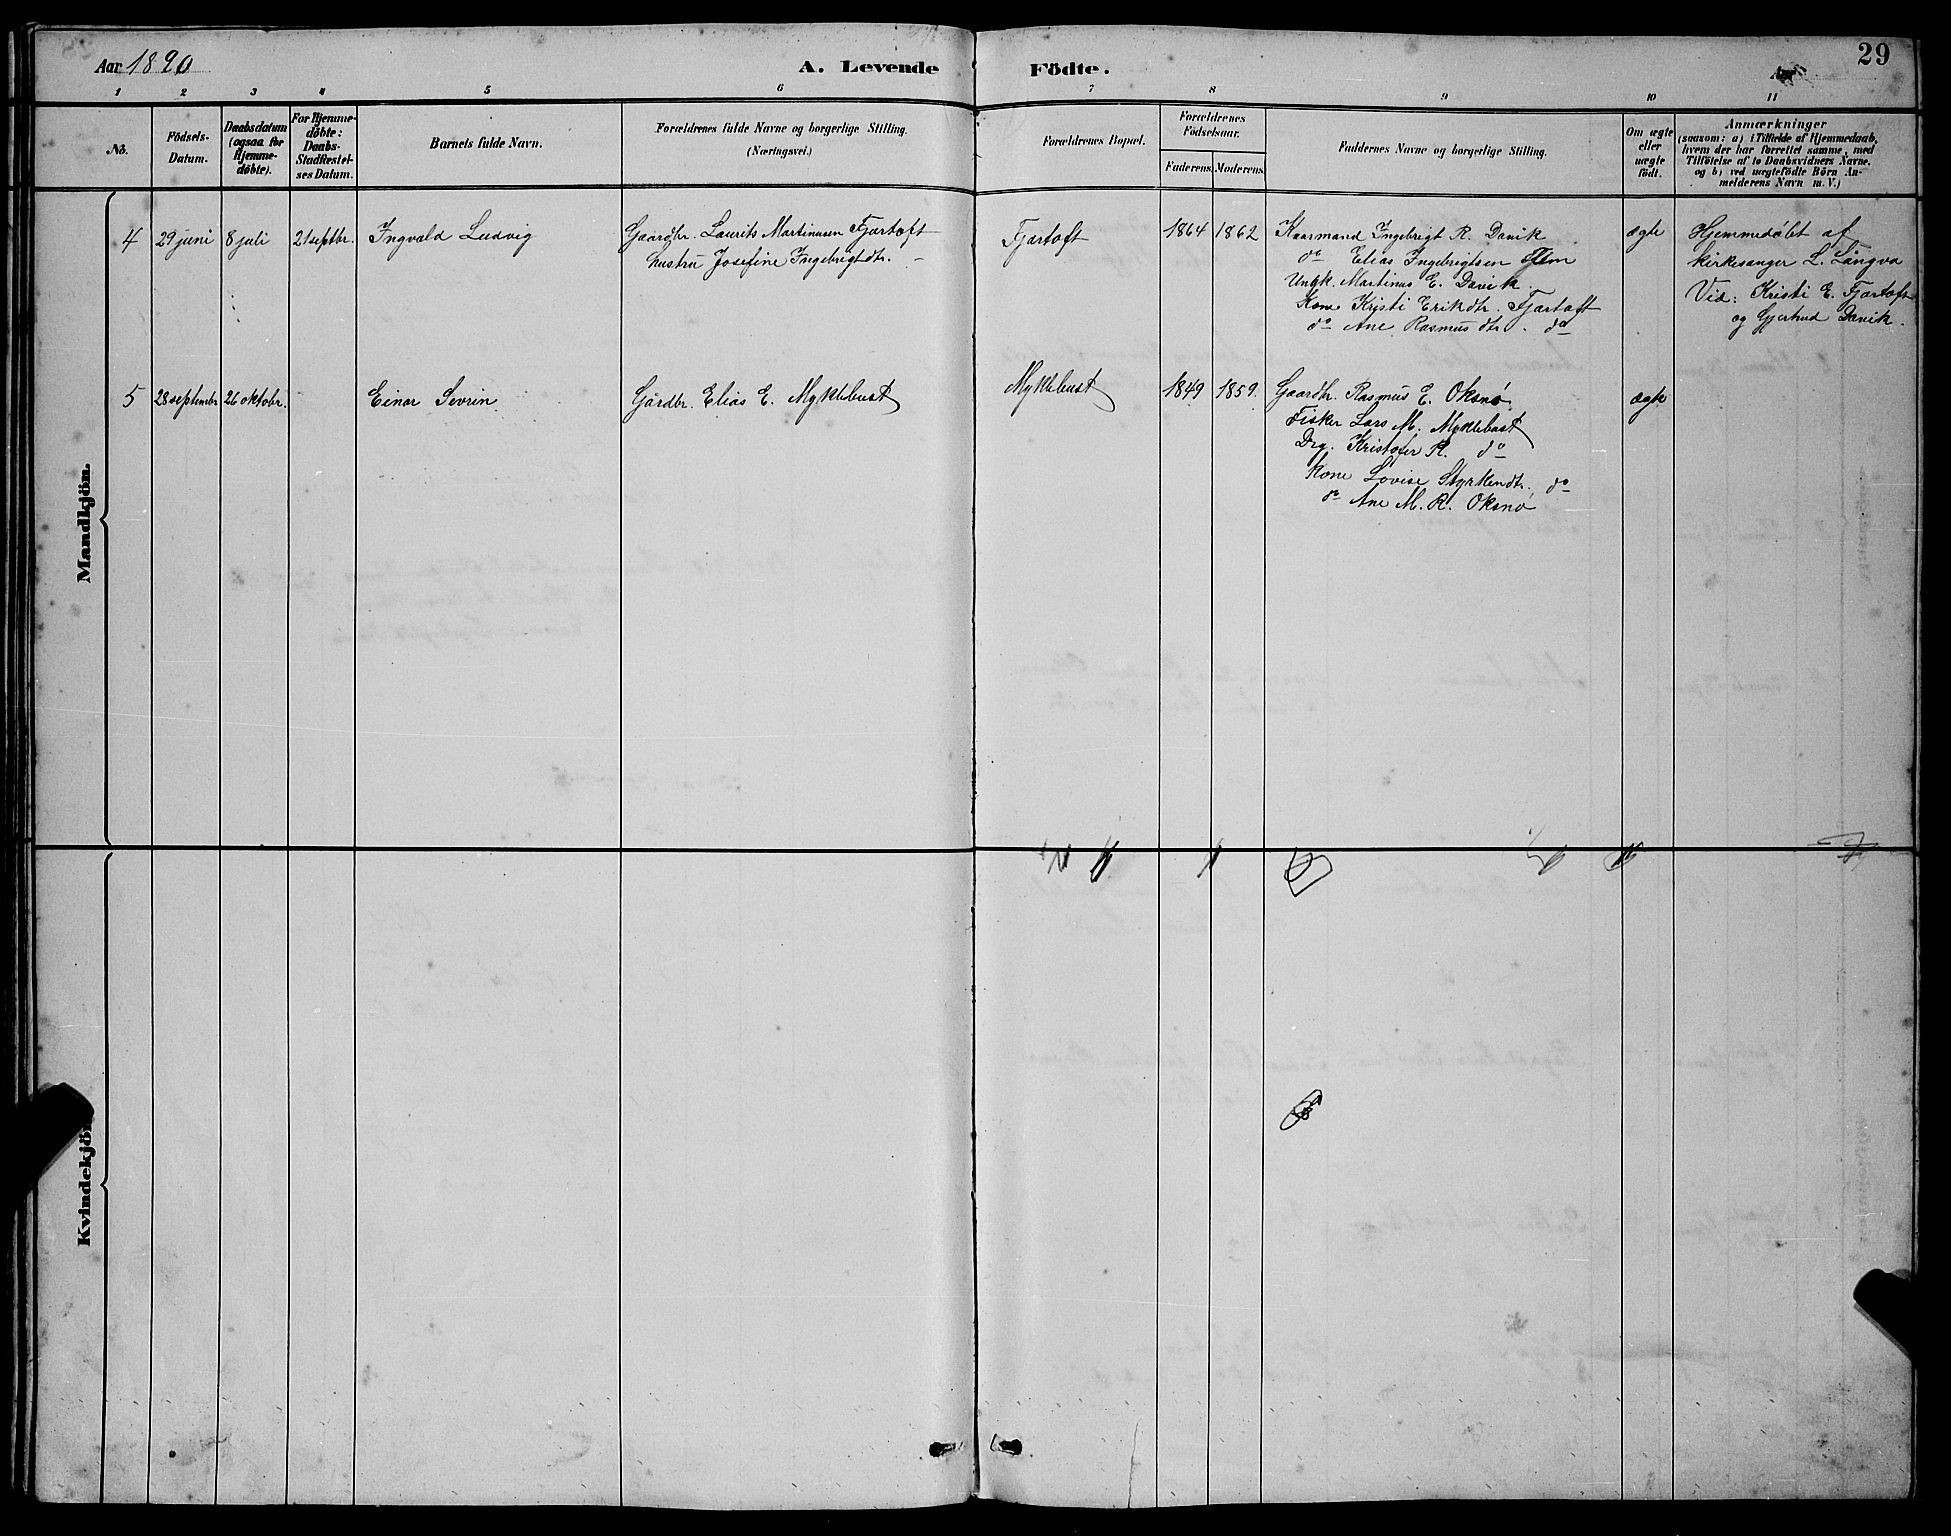 Aar 1890
A. Levende Födte.
Aar
29
1 2 3 4 5 6 7 8 9 10 11
No.
Födsels-
Datum.
Daabsdatum
(ogsaa for
Hjemme-
døbte).
For Hjemme-
døbte:
Daabs-
Stadfæstel-
ses Datum.
Barnets fulde Navn.
Forældrenes fulde Navne og borgerlige Stilling.
(Næringsvei.)
Forældrenes Bopæl.
Forældrenes
Födselsaar.
Faderens. Moderens.
Faddernes Navne og borgerlige Stilling.
Om ægte
eller
uægte
födt.
Anmærkninger
(saasom: a) i Tilfælde af Hjemmedaab,
hvem der har forrettet samme, med
Tilföielse af to Daabsvidners Navne,
og b) ved uægtefödte Börn An-
melderens Navn m. V.)
Mandkjön.
4 29 juni 8 juli 21 septbr. Ingvald Ludvig
Gaardbr. Laurits Martinusen Fjærtoft
hustru Josefine Ingebrigtdtr.
Fjærtoft 1864 1862
Kaarmand Ingebrigt R. Davik
do Elias Ingebrigtsen Flem
Ungk. Martinus E. Davik
Kone Kristi Erikdtr. Fjærtoft
do Ane Rasmusdtr. do
ægte
Hjemmedøbt af
kirkesanger L. Longva
Vid: Kristi E. Fjærtoft
og Gjertrud Davik.
5 28 septembr 26 oktobr. Einar Sevrin
Gårdbr. Elias E. Myklebust
Myklebust 1849 1859.
Gaardbr. Rasmus E. Oksnø
Fisker Lars M. Myklebust
Drg. Kristofer R. do
Kone Lovise Styrkendtr. do
do Ane M. R. Oksnø
ægte
Kvindekjön.